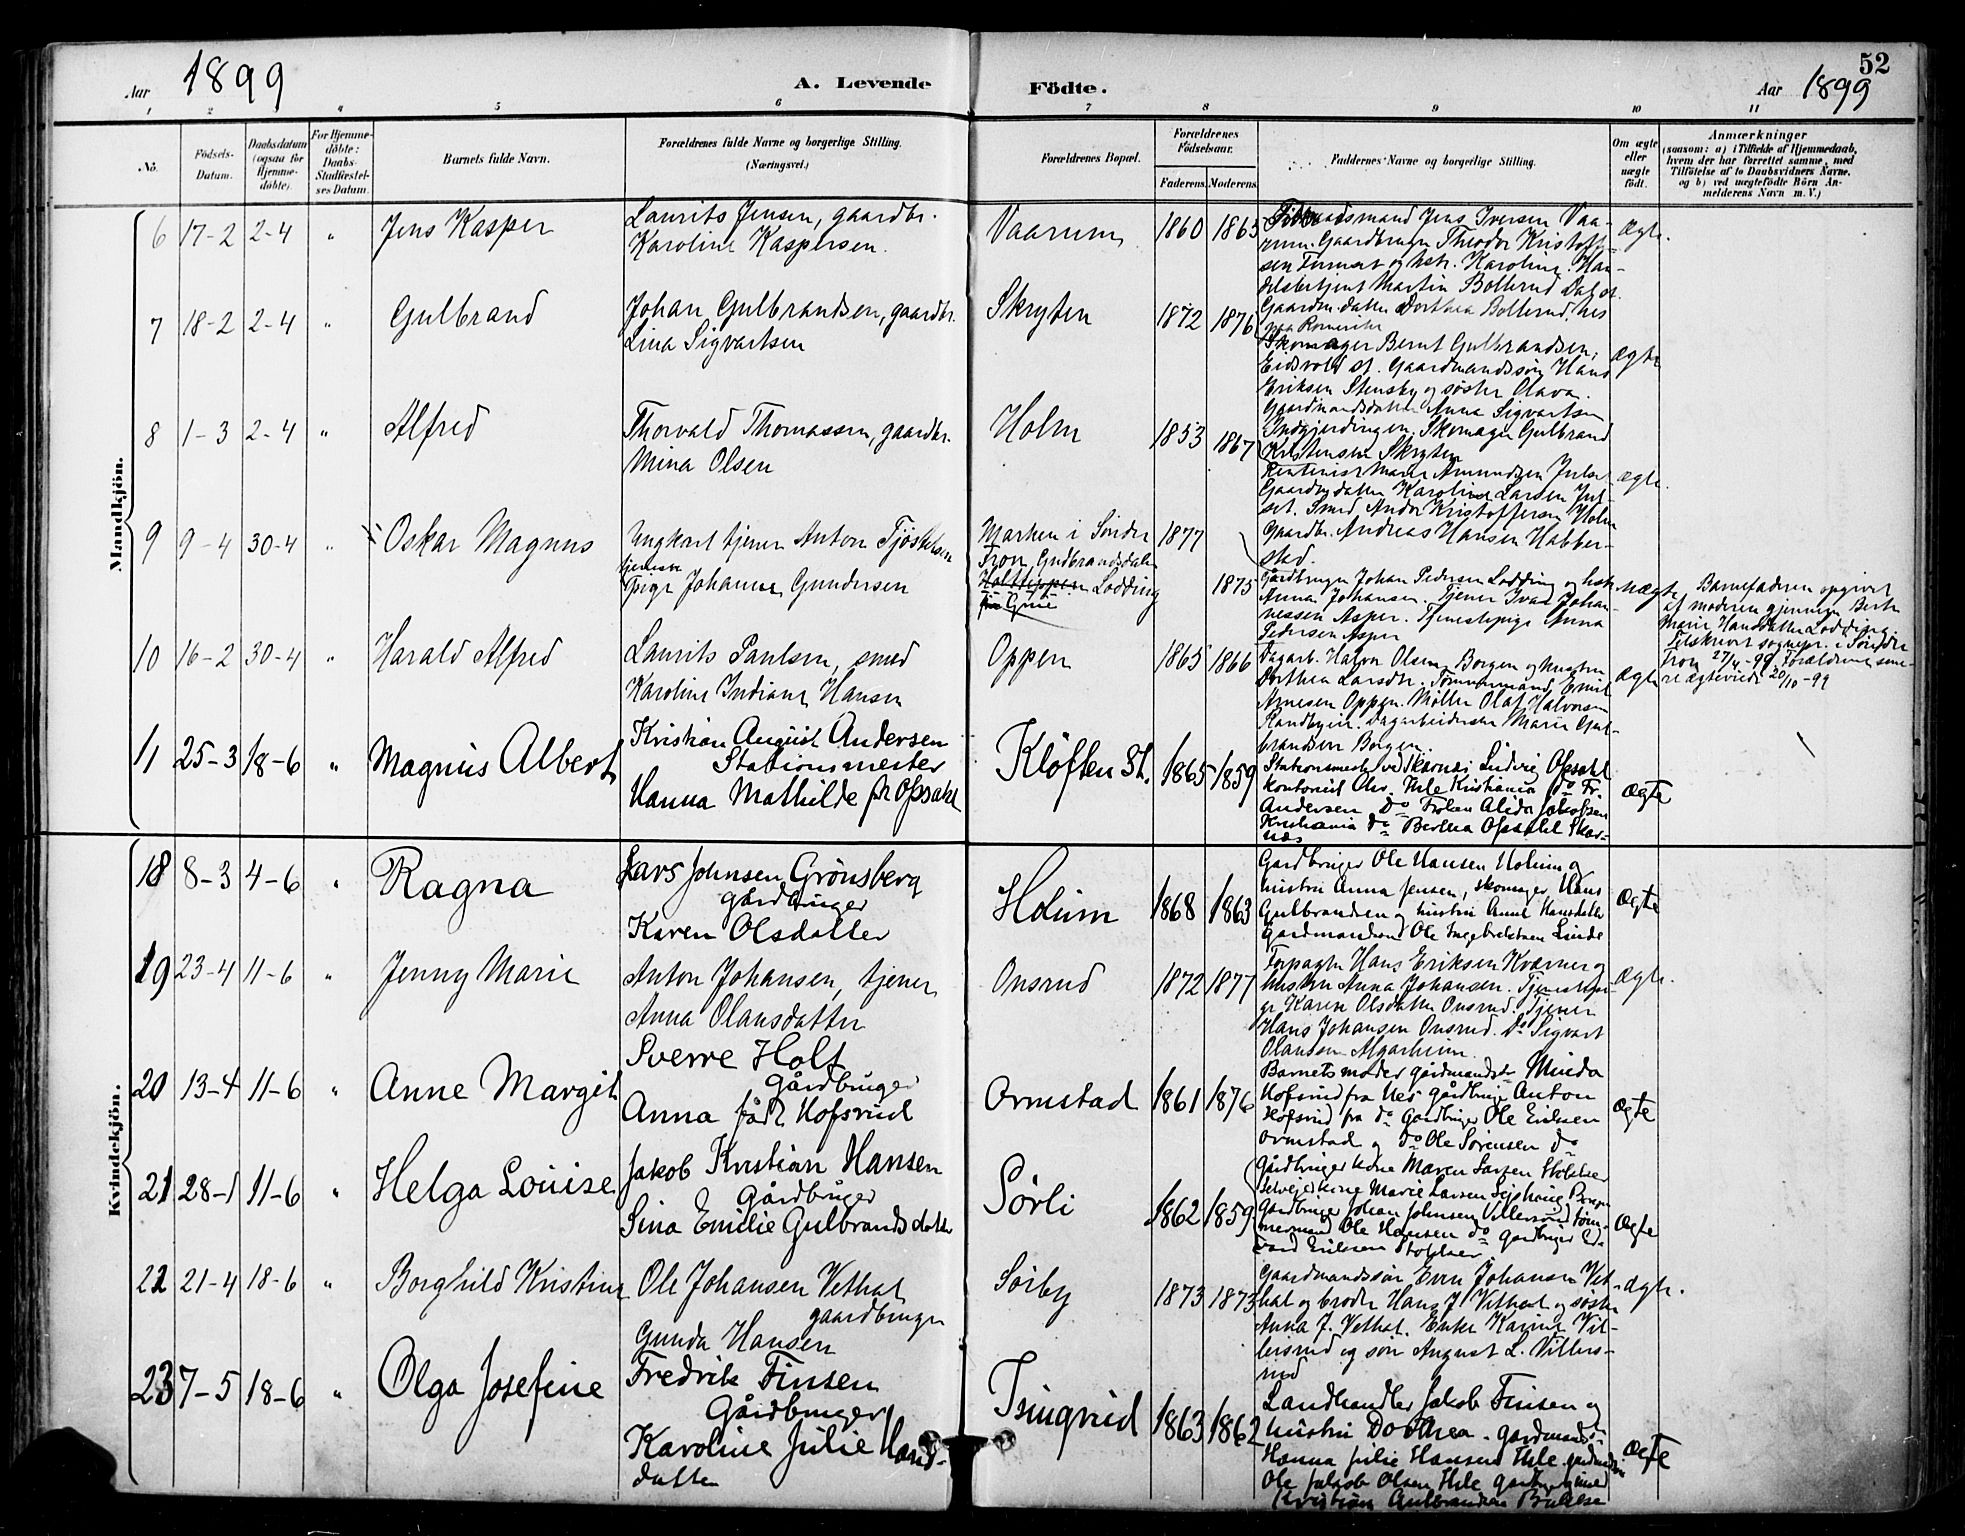 52
Aar 1899
A. Levende Födte.
Aar 1899
1 2 3 4 5 6 7 8 9 10 11
No.
Födsels-Datum.
Daabsdatum (ogsaa for Hjemme-döbte).
For Hjemme-döbte: Daabs-Stadfæstel-ses Datum.
Barnets fulde Navn.
Forældrenes fulde Navne og borgerlige Stilling. (Næringsvei.)
Forældrenes Bopæl.
Forældrenes Födselsaar.
Faderens. Moderens.
Faddernes Navne og borgerlige Stilling.
Om ægte eller uægte födt.
Anmærkninger
(saasom: a) i Tilfælde af Hjemmedaab, hvem der har forrettet samme, med Tilföielse af to Daabsvidners Navne, og b) ved uægtefödte Börn Anmelderens Navn m. V.)
Mandkjön.
6 17-2 2-4 " Jens Kasper
Laurits Jensen, gaardbr.
Karoline Kaspersen.
Vaarum 1860 1865
Jens Iversen Vaa-
rum. Gaardbruger Theodor Kristoff-
sen og hstr. Karoline. Han-
delsbetjent Martin Bollerud Dal st.
Gaardm. datter Dorthea Bollerud, Nes
paa Romerike
ægte.
7 18-2 2-4 " Gulbrand
Johan Gulbrandsen, gaardbr.
Lina Sigvartsen
Skryten 1872 1876
Skomager Bernt Gulbrandsen,
Eidsvold st. Gaardmandssøn Hans
Eriksen Stensby og søster Olava.
Gaardmandsdatter Anna Sigvartsen
Indgjerdingen, Skomager Gulbrand
Kristensen Skryten
ægte
8 1-3 2-4 " Alfred
Thorvald Thomassen, gaardbr.
Mina Olsen
Holm 1853 1867
Marie Amundsen Julset
Gaardbr. datter Karoline Larsen Jul-
set. Smed Andor Kristoffersen Holm
Gaardbr. Andreas Hansen Habber-
stad.
ægte.
9 9-4 30-4 " Oskar Magnus
Ungkarl tjener Anton Tjøstelsen
tjeneste
Pige Johanne Gundersen
Marken i Søndre
Fron, Gudbrandsdalen
Lodding
1877 1875
Gårdbruger Johan Pedersen Lodding og hstr
Anna Johansen. Tjener Ivar Johan-
nessen Asper. Tjenestepige Anna
Pedersen Asper
uægte
Barnefaderen opgivet
af moderen gjennem Berte
Marie Hansdatter Lodding.
Tilskrevet sognepr. i Søndre
Fron 27/4-99. Forældrene sene-
re ægteviede 20/10-99
10 16-2 30-4 " Harald Alfred
Laurits Paulsen, smed
Karoline Indiane Hansen
Oppen 1865 1866
Dagarb. Halvor Olsen Borgen og hustru
Dorthea Larsdtr. Tømmermand Emil
Arnesen Oppen. Møller Olaf Halvorsen
Randbyeie. Dagarbeiderske Marie Gul-
brandsen Borgen.
ægte
11 25-3 18-6 " Magnus Albert
Kristian August Andersen
Stationsmester
Hanna Mathilde f. Opsahl
Kløften St. 1865 1859
Stationsmester ved Skarnæs Ludvig Opsahl
Kontorist Chr. Hvle Kristiania Do Fr.
Andersen Do Frøken Alida Jakobsen
Kristiania Do Bertha Opsahl Skar-
næs
ægte
Kvindekjön.
18 8-3 4-6 " Ragna
Lars Johnsen Grønsberg
gårdbruger
Karen Olsdatter
Holum 1868 1863
Gardbruger Ole Hansen Holum og
hustru Anna Jensen, skomager Hans
Gulbrandsen og hustru Anne Hansdatter
Gardmandssøn Ole Ingebretsen Linde
ægte
19 23-4 11-6 " Jenny Marie
Anton Johansen, tjener
Anna Olausdatter
Onsrud 1872 1877
Forpagter Hans Eriksen Kværner og
hustru Anna Johansen. Tjenestepi-
ge Karen Olsdatter Onsrud. Tjener
Hans Johansen Onsrud. Do Sigvart
Olausen Algarheim.
ægte.
20 13-4 11-6 " Anne Margit
Sverre Holt
Gårdbruger
Anna født Hofsrud
Ormstad 1861 1876
Barnets moder gårdmandsdtr Minda
Hofsrud fra Nes gårdbruger Anton
Hofsrud fra do Gardbruger Ole Eriksen
Ormstad og Do Ole Sørensen Do
ægte
21 28-1 11-6 " Helga Louise
Jakob Kristian Hansen
Gårdbruger
Sina Emilie Gulbrandsdatter
Sørli 1862 1859
Gårdbrugerkone Maren Larsen
Selveierkone Marie Larsen
Gårdbruger Johan Johnsen Villersrud tøm-
mermand Ole Hansen do Gardbruger Ed-
vard Eriksen
ægte
22 21-4 18-6 " Borghild Kristine
Ole Johansen Vethal
gaardbruger
Gunda Hansen
Sørby 1873 1873
Gaardmandssøn Even Johansen Vet-
hal og broder Hans J. Vethal og søster
Anna J. Vethal. Enke Karine Vil-
lersrud og søn August L. Villers-
rud
ægte.
23 7-5 18-6 " Olga Josefine
Fredrik Finsen
Gårdbruger
Karoline Julie Hans-
datter
Tsingrud 1863 1862
Landhandler Jakob Finsen og
hustru Dorthea. gardmands-
Hanna Julie Hansen Hvle
Ole Jakob Olsen Hvle
Kristian Gulbrandsen
ægte